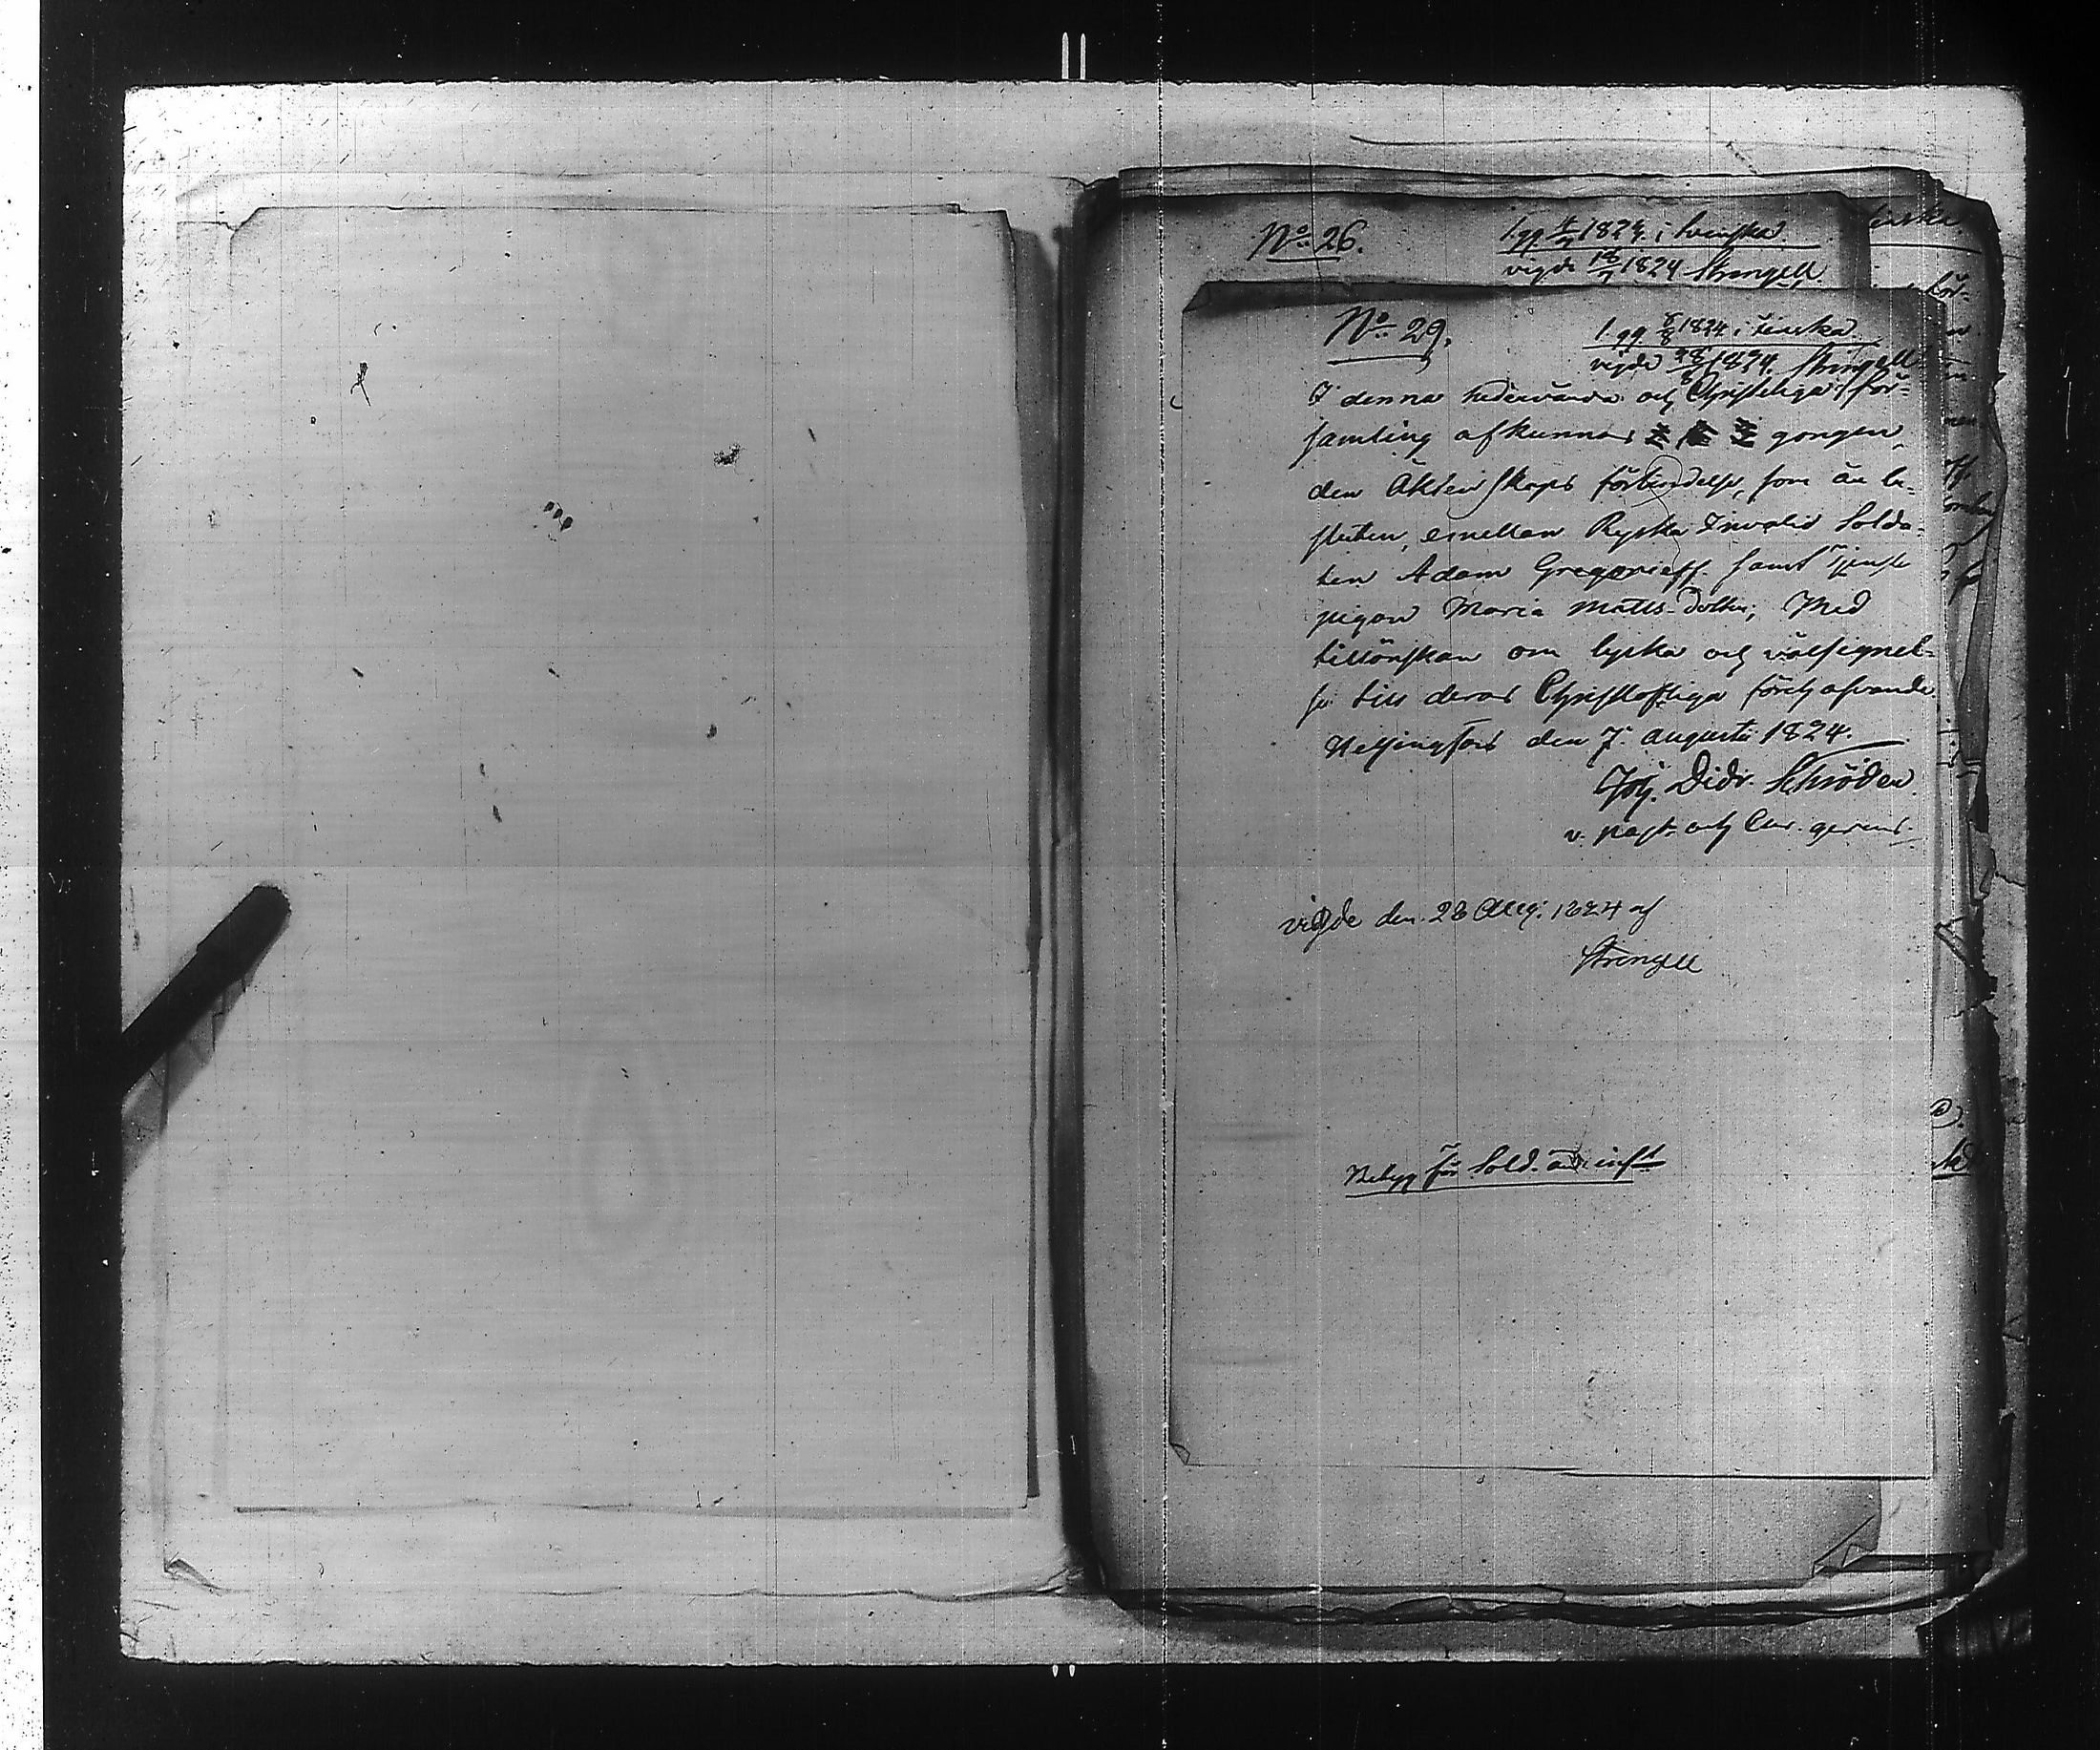 No 26.
1. gg 4/7 1824. i svenska
vigde 18/7 1824 Strengell.
No 29.
1. gg 8/8 1824 i finska
vigde 28/8 1824. Strengell
I denna hedervärda och Christeliga för-
samling afkunnas gången,
den Äktenskaps förbindelse, som är be-
sluten, emellan Ryska Invalid Solda-
ten Adam Gregorieff samt Tjenste
pigan Maria Matts-Dotter; Med
tillönskan om lycka och välsignel-
se till deras Christeliga företagande
Helsingfors den 7. Augusti 1824.
Joh. Didr. Schröder.
v. past. och Cur. gerens.
vigde den 28 Aug. 1824 af
Strengell
för Sold.